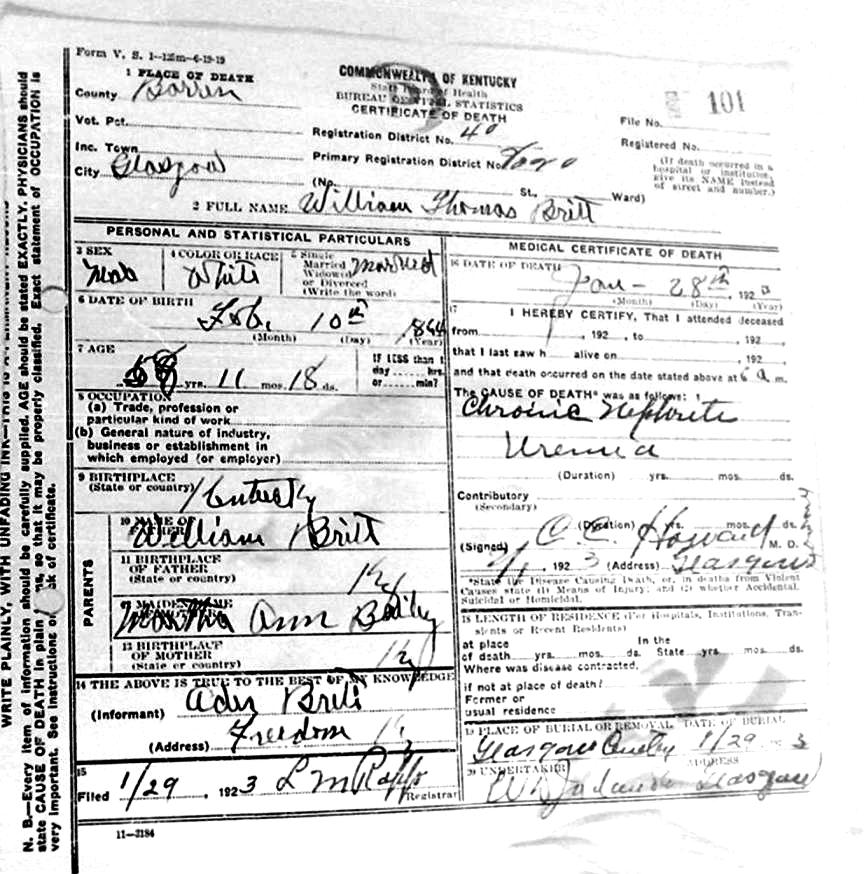 Form V. S. 1—125m—6-19-19
1 PLACE OF DEATH
County Barren
Vot. Pct.
Inc. Town
City Glasgow
COMMONWEALTH OF KENTUCKY
State Board of Health
BUREAU OF VITAL STATISTICS
CERTIFICATE OF DEATH
Registration District No. 40
Primary Registration District No.
(No. St., Ward)
File No. 101
Registered No.
(If death occurred in a
hospital or institution,
give its NAME instead
of street and number.)
2 FULL NAME William Thomas Britt
PERSONAL AND STATISTICAL PARTICULARS
3 SEX
Male
4 COLOR OR RACE
White
5 Single
Married
Widowed
or Divorced
(Write the word)
Married
6 DATE OF BIRTH
Feb. 10th 1864
(Month) (Day) (Year)
7 AGE
58 yrs. 11 mos. 18 ds.
IF LESS than 1
day hrs.
or min?
8 OCCUPATION
(a) Trade, profession or
particular kind of work
(b) General nature of industry,
business or establishment in
which employed (or employer)
9 BIRTHPLACE
(State or country)
Kentucky
PARENTS
10 NAME OF
FATHER
William Britt
11 BIRTHPLACE
OF FATHER
(State or country)
Ky
12 MAIDEN NAME
Martha Ann Bailey
13 BIRTHPLACE
OF MOTHER
(State or country)
Ky
14 THE ABOVE IS TRUE TO THE BEST OF MY KNOWLEDGE
(Informant) Britt
(Address) Freedom Ky
15
Filed 1/29, 1923 L M
Registrar
11—3184
MEDICAL CERTIFICATE OF DEATH
16 DATE OF DEATH
Jan — 28th, 1923
(Month) (Day) (Year)
17
I HEREBY CERTIFY, That I attended deceased
from , 192 , to , 192 ,
that I last saw h alive on , 192 ,
and that death occurred on the date stated above at 6 a m.
The CAUSE OF DEATH* was as follows:
Chronic Nephritis
Uremia
(Duration) yrs. mos. ds.
Contributory
(Secondary)
(Duration) yrs. mos. ds.
(Signed) C. C. Howard M. D.
1923 (Address) Glasgow
*State the Disease Causing Death, or, in deaths from Violent
Causes state (1) Means of Injury; and (2) whether Accidental,
Suicidal or Homicidal.
18 LENGTH OF RESIDENCE (For Hospitals, Institutions, Tran-
sients or Recent Residents)
at place In the
of death yrs. mos. ds. State yrs. mos. ds.
Where was disease contracted,
if not at place of death?
Former or
usual residence
19 PLACE OF BURIAL OR REMOVAL DATE OF BURIAL
Glasgow 1/29 3
20 UNDERTAKER ADDRESS
Glasgow
WRITE PLAINLY, WITH UNFADING INK—THIS IS A PERMANENT RECORD
N. B.—Every item of information should be carefully supplied. AGE should be stated EXACTLY. PHYSICIANS should
state CAUSE OF DEATH in plain so that it may be properly classified. Exact statement of OCCUPATION is
very important. See instructions of certificate.